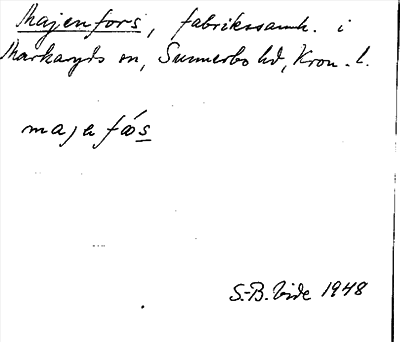 Majenfors, fabrikssamh. i
Markaryds sn, Sunnerbo hd, Kron. l.
majafås
S.-B. Vide 1948